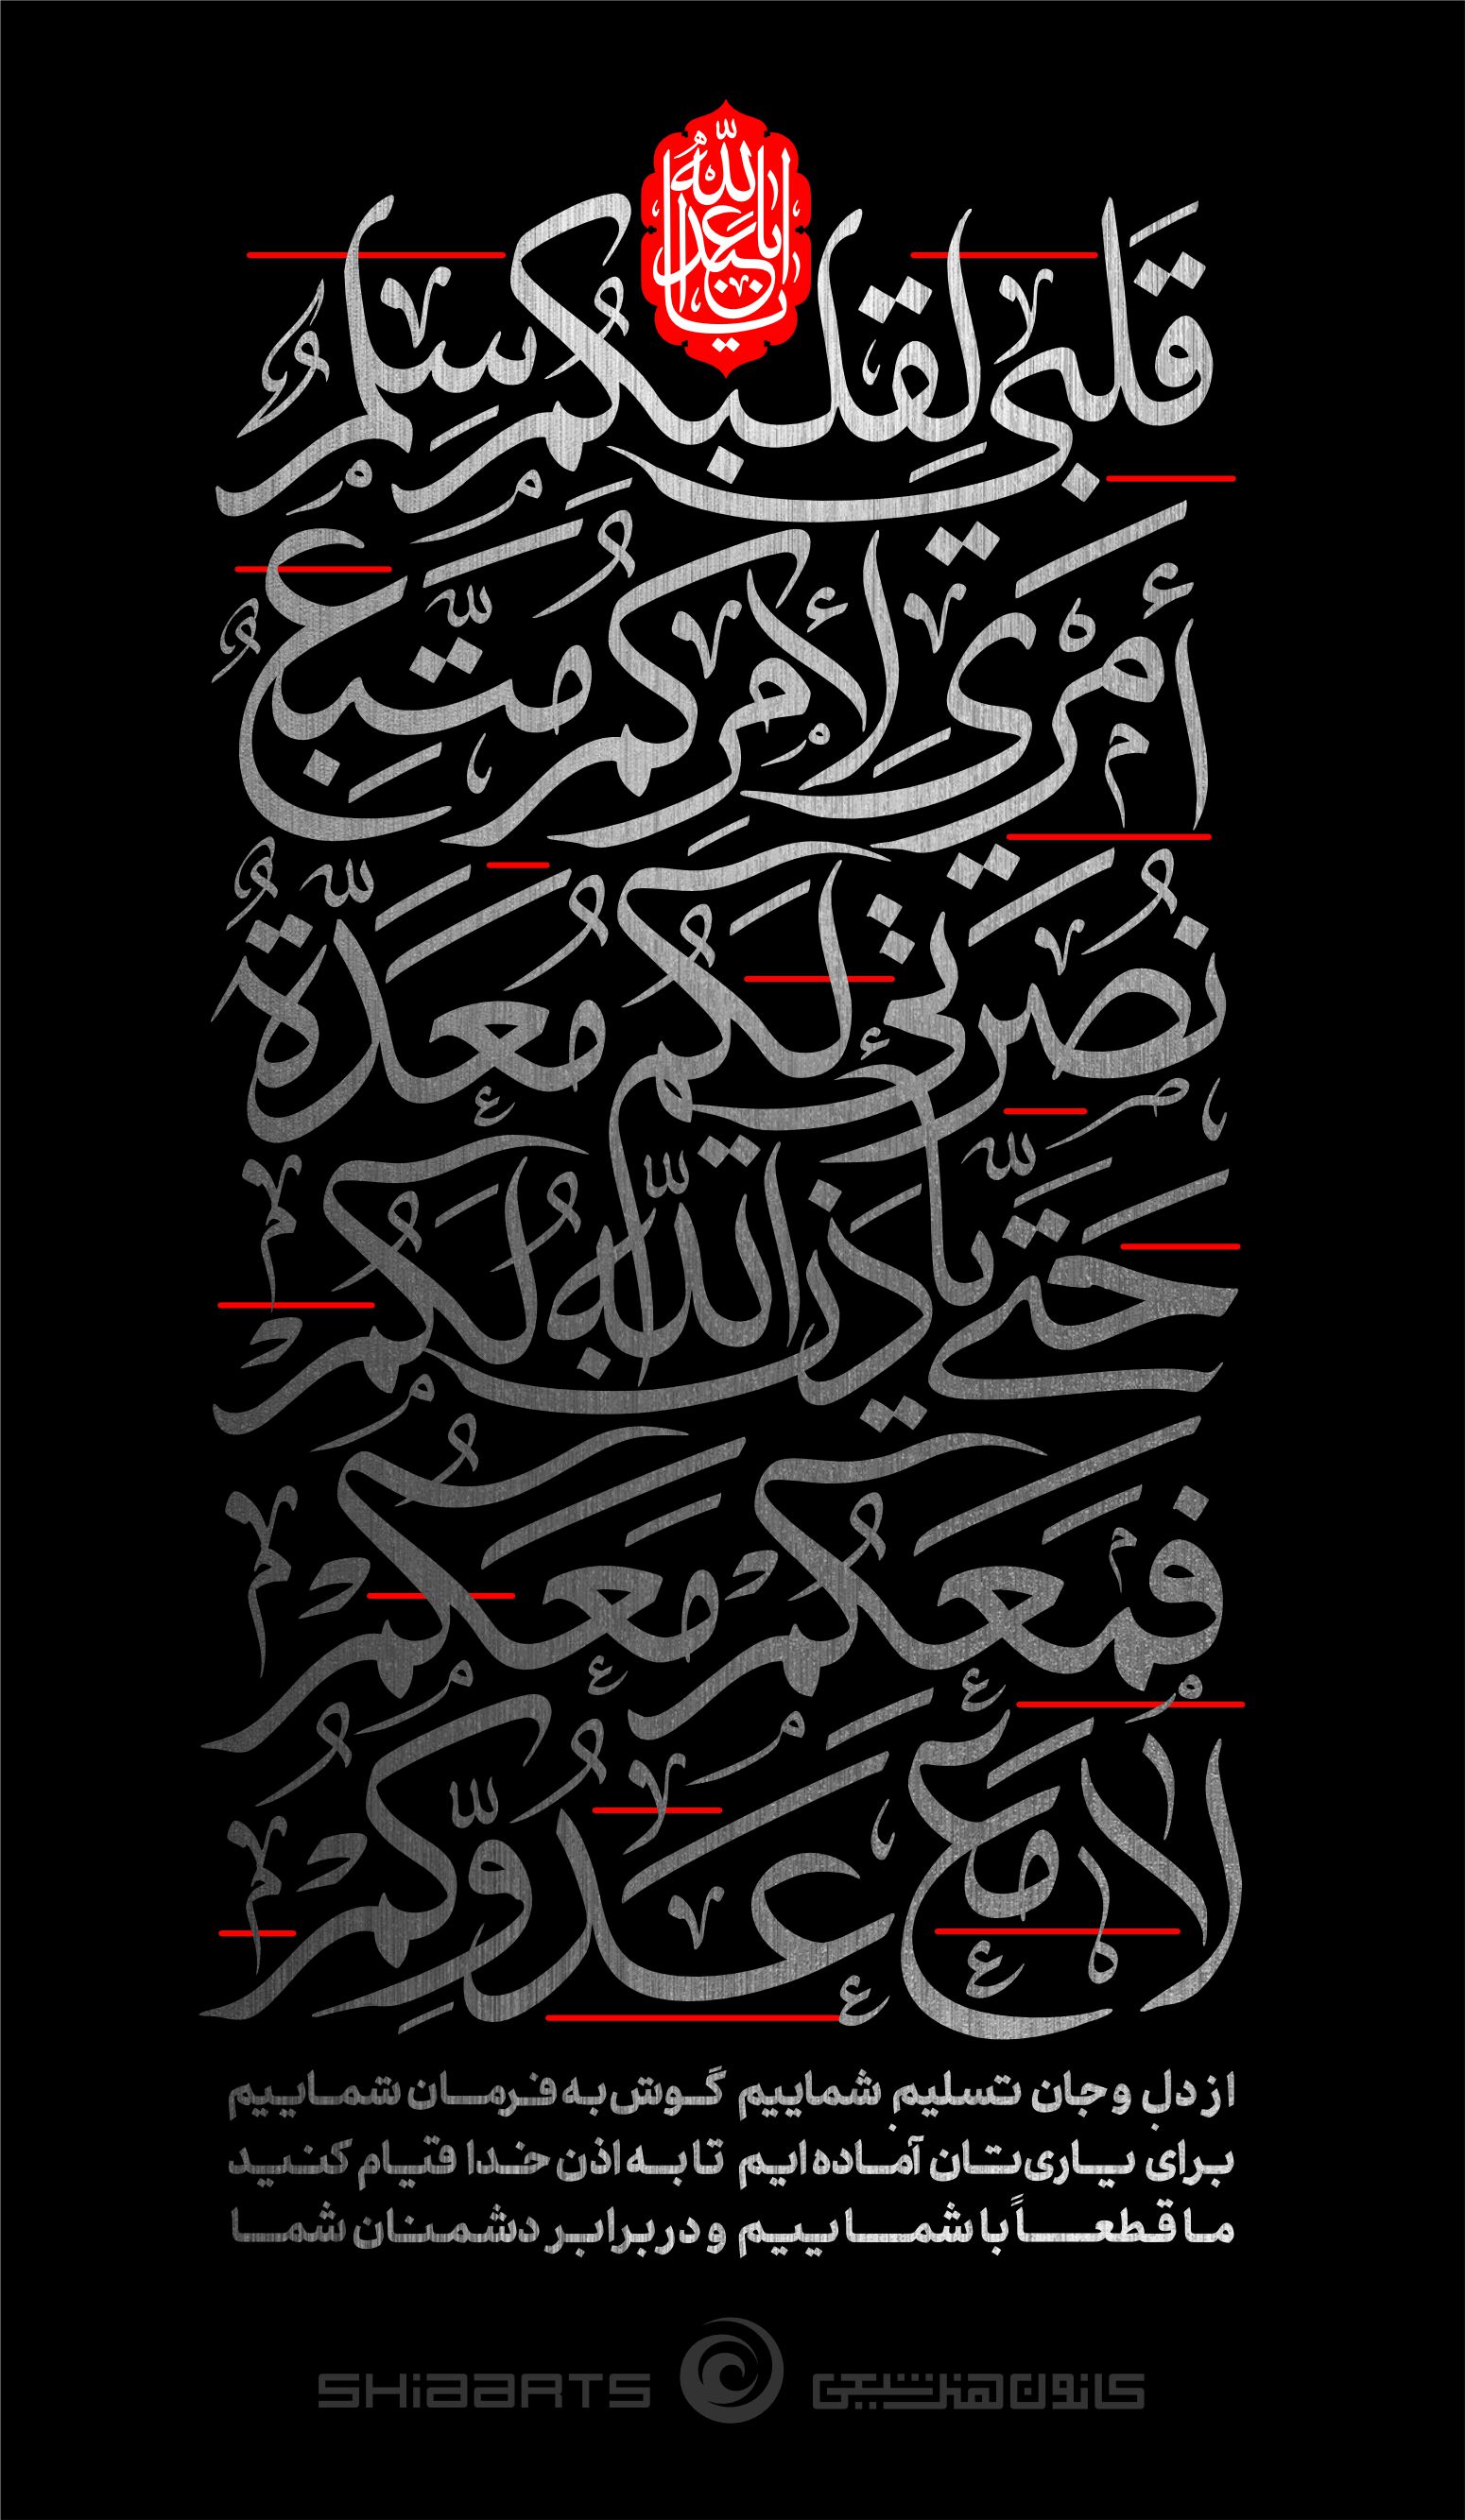 یا اباعبدالله
قَلْبِي لِقَلْبِكُمْ سِلْمٌ
أَمْرِي لِأَمْرِكُمْ مُتَّبِعٌ
نُصْرَتِي لَكُمْ مُعَدَّةٌ
حَتَّى يَأْذَنَ اللَّهُ لَكُمْ
فَمَعَكُمْ مَعَكُمْ
لَا مَعَ عَدُوِّكُمْ
از دل و جان تسلیم شماییم گوش به فرمان شماییم
برای یاری‌تان آماده ایم تا به اذن خدا قیام کنید
ما قطعاً با شماییم و در برابر دشمنان شما
SHIAARTS کانون هنر شیعی